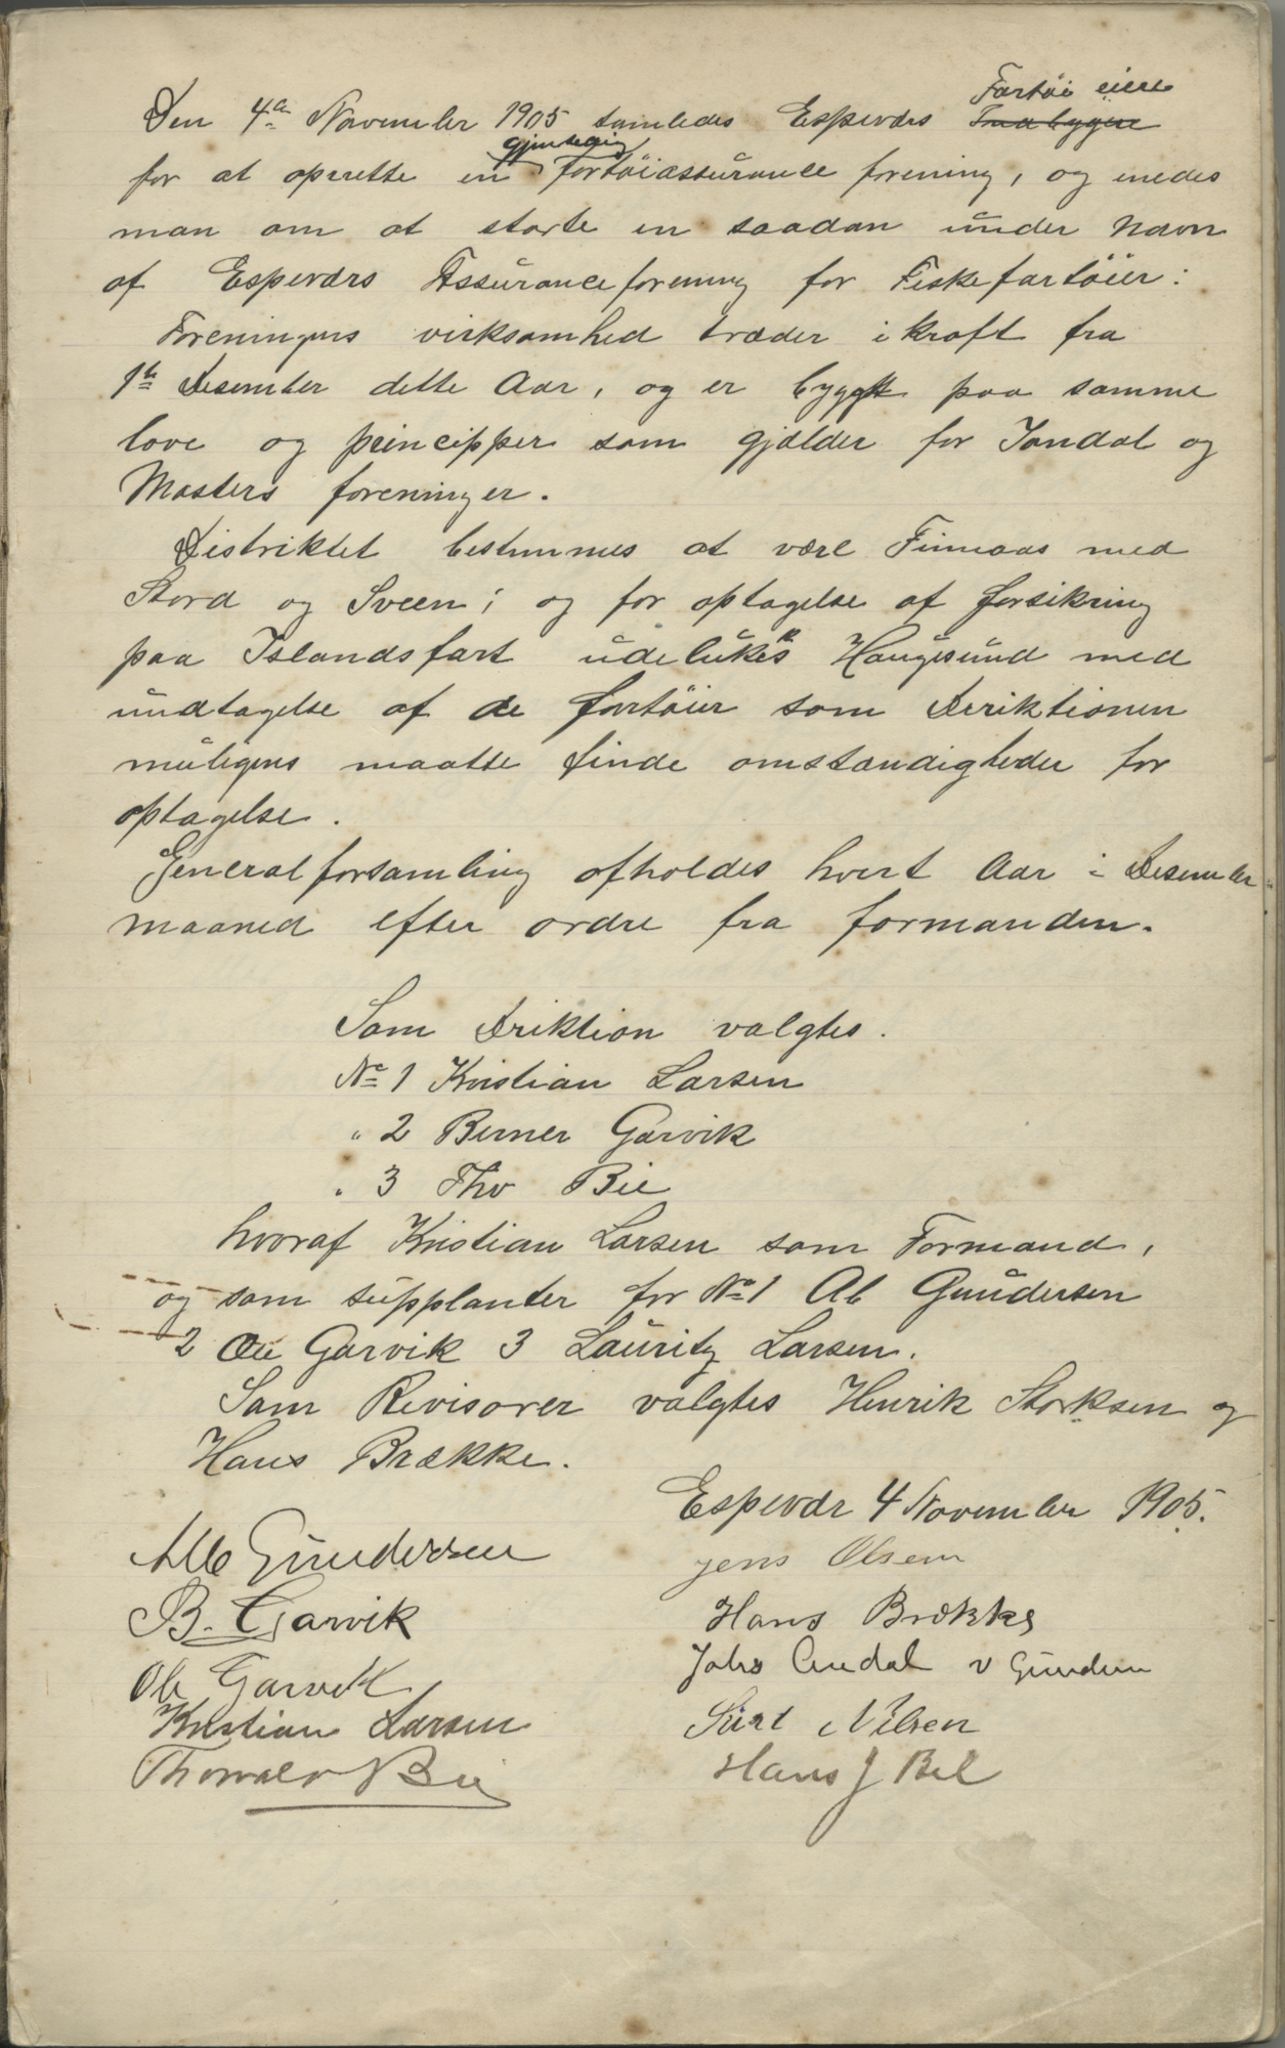 Den 4de November 1905 samledes Espeværs Indbygere Fartöi eiere
for at oprette en gjensedig Fartöiassurance forening, og enedes
man om at starte en saadan under Navn
af Espeværs Assuranceforening for Fiskefartöier:
Foreningens virksomhed træder i kraft fra
1te Desember dette Aar, og er bygget paa samme
love og principper som gjælder for Jondal og
Mosters foreninger.
Distriktet bestemmes at være Finnaas med
Stord og Sveen; og for optagelse af forsikring
paa Islandsfart udelukes Haugesund med
undtagelse af de fartöier som Deriktionen
muligens maatte finde omstændigheder for
optagelse.
Generalforsamling afholdes hvert Aar i Desember
maaned efter ordre fra formanden.
Som Driktion valgtes.
No 1 Kristian Larsen
" 2 Berner Garvik
" 3 Tho Bie
hvoraf Kristian Larsen som Formand,
og som supplanter for No 1 Ab Gundersen
2 Ole Garvik 3 Lauritz Larsen.
Som Revisorer valgtes Henrik Storksen og
Hans Brække.
Espevær 4 November 1905.
Gundersen
B. Garvik
Ole Garvik
Kristian Larsen
Thorvald Bie
Jens Olsen
Hans Brække
Johs v Gundersen
Nilsen
Hans J